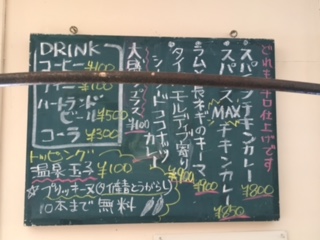 どれも辛口仕上げです
スパイシーチキンカレー
¥800
スパイシーMAXチキンカレー
¥850
ラムと長ネギのキーマ
¥900
タイ モルディブ寄り
ココナツカレー
¥900
大盛プラス
¥100
DRINK
コーヒー ¥100
¥100
ハートランド
ビール ¥500
コーラ ¥300
トッピング
温泉玉子 ¥100
☆プリッキーヌ(生唐辛子)
10本まで 無料